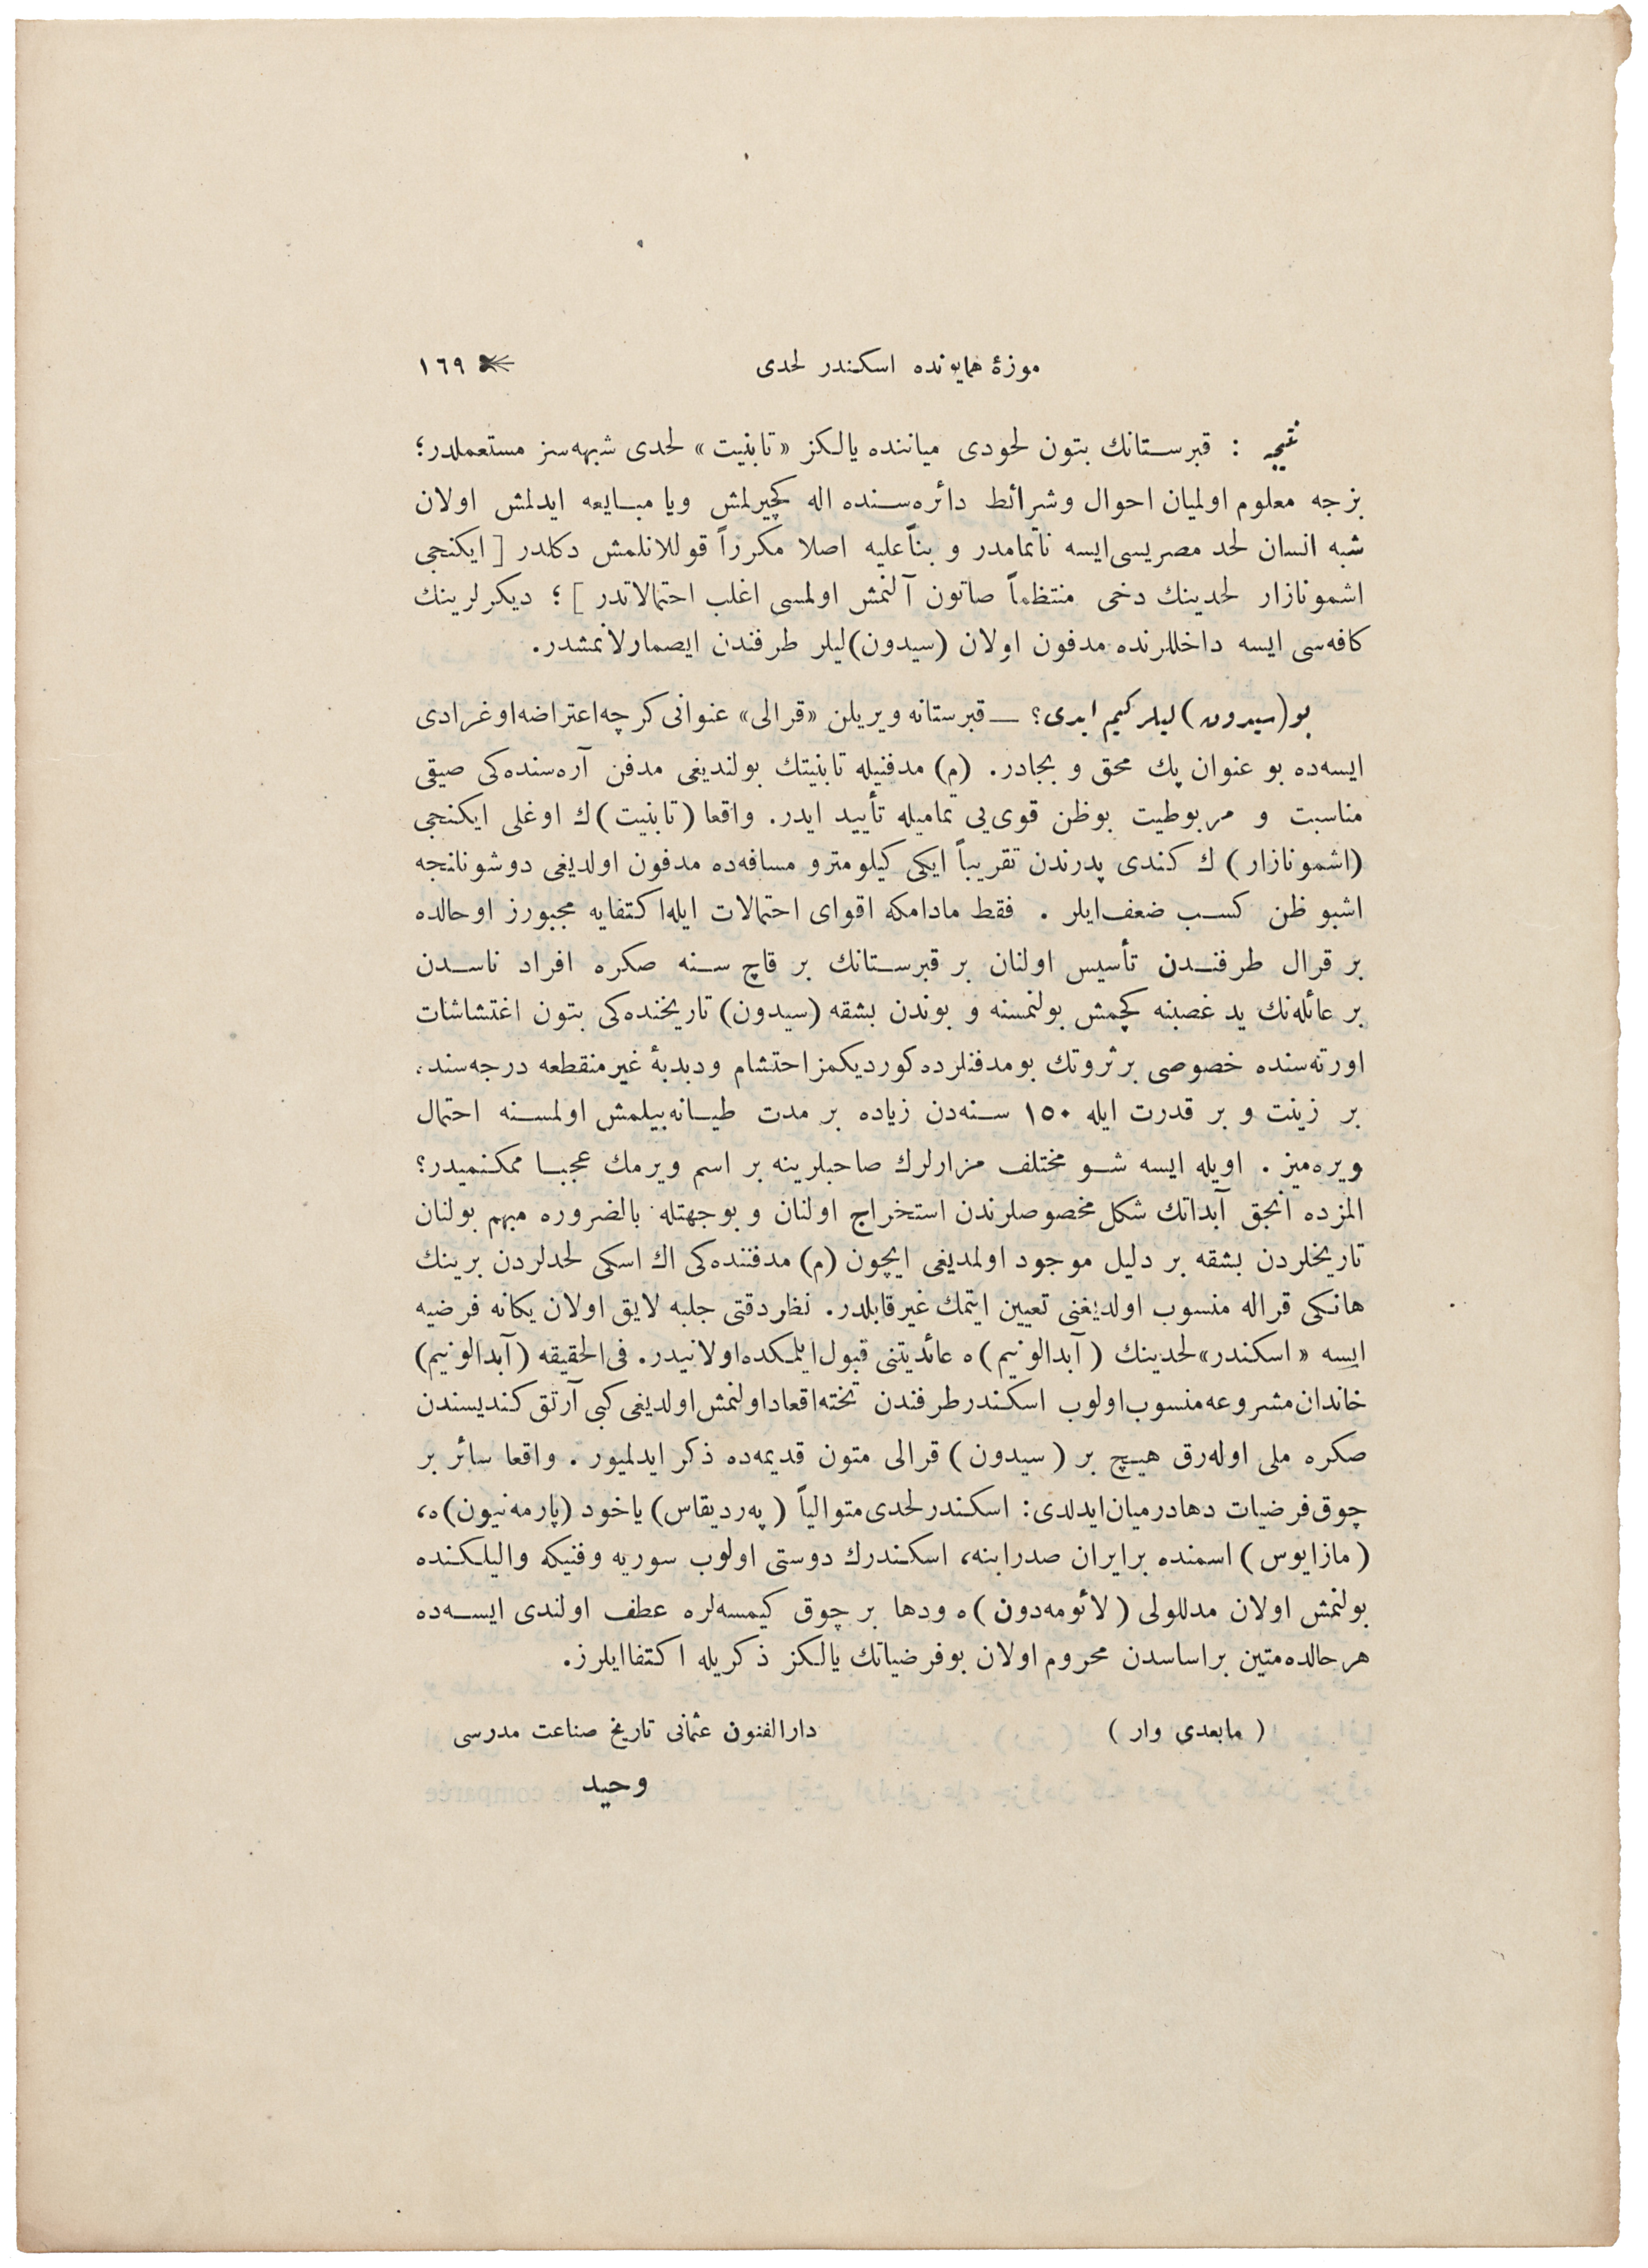 موزهٔ همایونده اسکندر لحدی ١٦٩
نتیجه : قبرستانك بتون لحودی میاننده یالکز «تابنیت» لحدی شبهه‌سز مستعملدر؛
بزجه معلوم اولمیان احوال وشرائط دائره‌سنده اله کچیرلمش ویا مبایعه ایدلمش اولان
شبه انسان لحد مصریسی ایسه ناتمامدر و بناًعلیه اصلا مکرراً قوللانلمش دکلدر [ ایکنجی
اشمونازار لحدینك دخی منتظماً صاتون آلنمش اولمسی اغلب احتمالاتدر ] ؛ دیکرلرینك
کافه‌سی ایسه داخللرنده مدفون اولان (سیدون)لیلر طرفندن ایصمارلانمشدر.
بو (سیدون) لیلر کیم ایدی؟ — قبرستانه ویریلن «قرالی» عنوانی کرچه اعتراضه اوغرادی
ایسه‌ده بو عنوان پك محق و بجادر. (م) مدفنیله تابنیتك بولندیغی مدفن آره‌سنده‌کی صیقی
مناسبت و مربوطیت بوظن قوی‌یی تمامیله تأیید ایدر. واقعا (تابنیت)ك اوغلی ایکنجی
(اشمونازار) ك کندی پدرندن تقریباً ایکی کیلومترو مسافه‌ده مدفون اولدیغی دوشونلنجه
اشبو ظن کسب ضعف ایلر . فقط مادامکه اقوای احتمالات ایله اکتفایه مجبورز اوحالده
بر قرال طرفندن تأسیس اولنان بر قبرستانك بر قاچ سنه صکره افراد ناسدن
بر عائله‌نك ید غصبنه کچمش بولنمسنه و بوندن بشقه (سیدون) تاریخنده‌کی بتون اغتشاشات
اورته‌سنده خصوصی بر ثروتك بومدفنلرده کوردیکمز احتشام ودبدبهٔ غیر منقطعه درجه‌سنده
بر زینت و بر قدرت ایله ١٥٠ سنه‌دن زیاده بر مدت طیانه‌بیلمش اولمسنه احتمال
ویره‌میز . اویله ایسه شو مختلف مزارلرك صاحبلرینه بر اسم ویرمك عجبا ممکنمیدر؟
المزده انجق آبداتك شکل مخصوصلرندن استخراج اولنان و بوجهتله بالضروره مبهم بولنان
تاریخلردن بشقه بر دلیل موجود اولمدیغی ایچون (م) مدفننده‌کی اك اسکی لحدلردن برینك
هانکی قراله منسوب اولدیغنی تعیین ایتمك غیر قابلدر. نظر دقتی جلبه لایق اولان یکانه فرضیه
ایسه «اسکندر» لحدینك (آبدالونیم)ه عائدیتنی قبول ایلمکده اولانیدر. فی الحقیقه (آبدالونیم)
خاندان مشروعه منسوب اولوب اسکندر طرفندن تخته اقعاد اولنمش اولدیغی کبی آرتق کندیسندن
صکره ملی اوله‌رق هیچ بر (سیدون) قرالی متون قدیمه‌ده ذکر ایدلمیور . واقعا سائر بر
چوق فرضیات دها درمیان ایدلدی: اسکندر لحدی متوالیاً (په‌ردیقاس) یاخود (پارمه‌نیون)ه،
(مازایوس) اسمنده بر ایران صدرابنه، اسکندرك دوستی اولوب سوریه وفنیکه والیلکنده
بولنمش اولان مدللولی (لائومه‌دون)ه ودها بر چوق کیمسه‌لره عطف اولندی ایسه‌ده
هر حالده متین بر اساسدن محروم اولان بوفرضیاتك یالکز ذکریله اکتفا ایلرز.
( مابعدی وار ) دارالفنون عثمانی تاریخ صناعت مدرسی
وحید